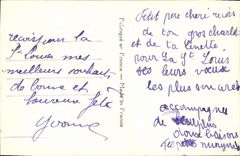 reçois pour la
St Louis mes
meilleurs souhaits
de bonne et
heureuse fête
Yvonne
Fabriqué en France - Made in France
Petit père chéri reçois
de ton gros Charlot
et de ta
pour la St Louis
leurs voeux
les plus
accompagnés
de
doux baisers